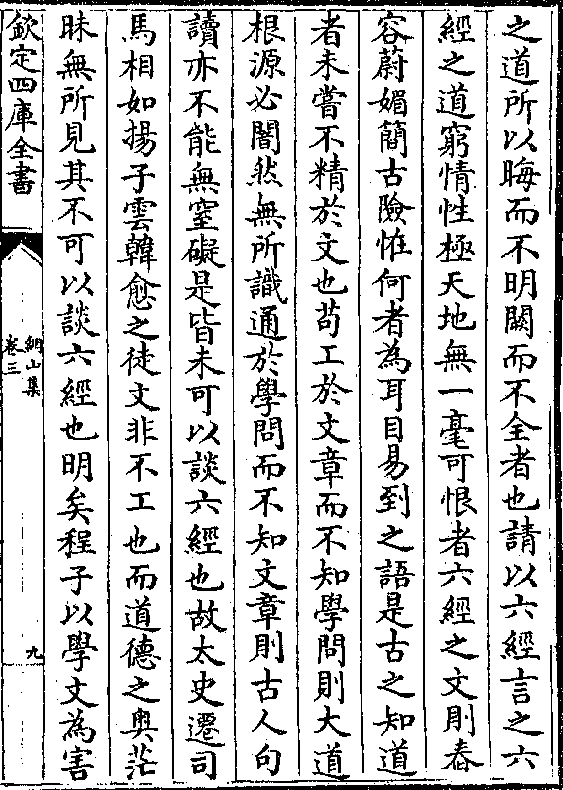 之道所以晦而不明闕而不全者也請以六經言之六
經之道窮情性極天地無一毫可恨者六經之文則舂
容蔚媚簡古險恠何者為耳目易到之語是古之知道
者未嘗不精於文也苟工於文章而不知學問則大道
根源必闇然無所識通於學問而不知文章則古人句
讀亦不能無窒礙是皆未可以談六經也故太史遷司
馬相如揚子雲韓愈之徒文非不工也而道德之奥茫
昧無所見其不可以談六經也明矣程子以學文為害
欽定四庫全書
網山集
卷三
九